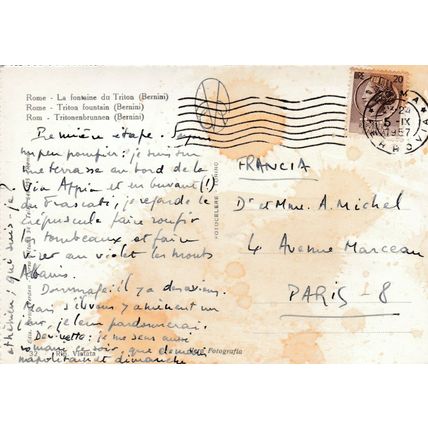 Rome - La fontaine du Triton (Bernini)
Rome - Triton fountain (Bernini)
Rom - Tritonenbrunnen (Bernini)
Première étape.
un peu pouffir: je suis sur
une terrasse au bord de la
Via Appia et en buvant (!)
du Frascati, je regarde le
crépuscule faire
tombeaux et faire
virer au violet les monts
Albains.
Dommage: il y a des
Mais s'ils vous y amènent un
jour, je leur pardonnerai.
Devinette: je me sens aussi
romain ce soir, que demain
napolitain et dimanche
athénien. que suis-je?
FRANCIA
Dr et Mme. A. Michel
4. Avenue Marceau
PARIS - 8
20
ROMA
5-IX
1957
FERROVIA
FOTOCELERE TORINO
32
Rip. Vietata
Vera Fotografia